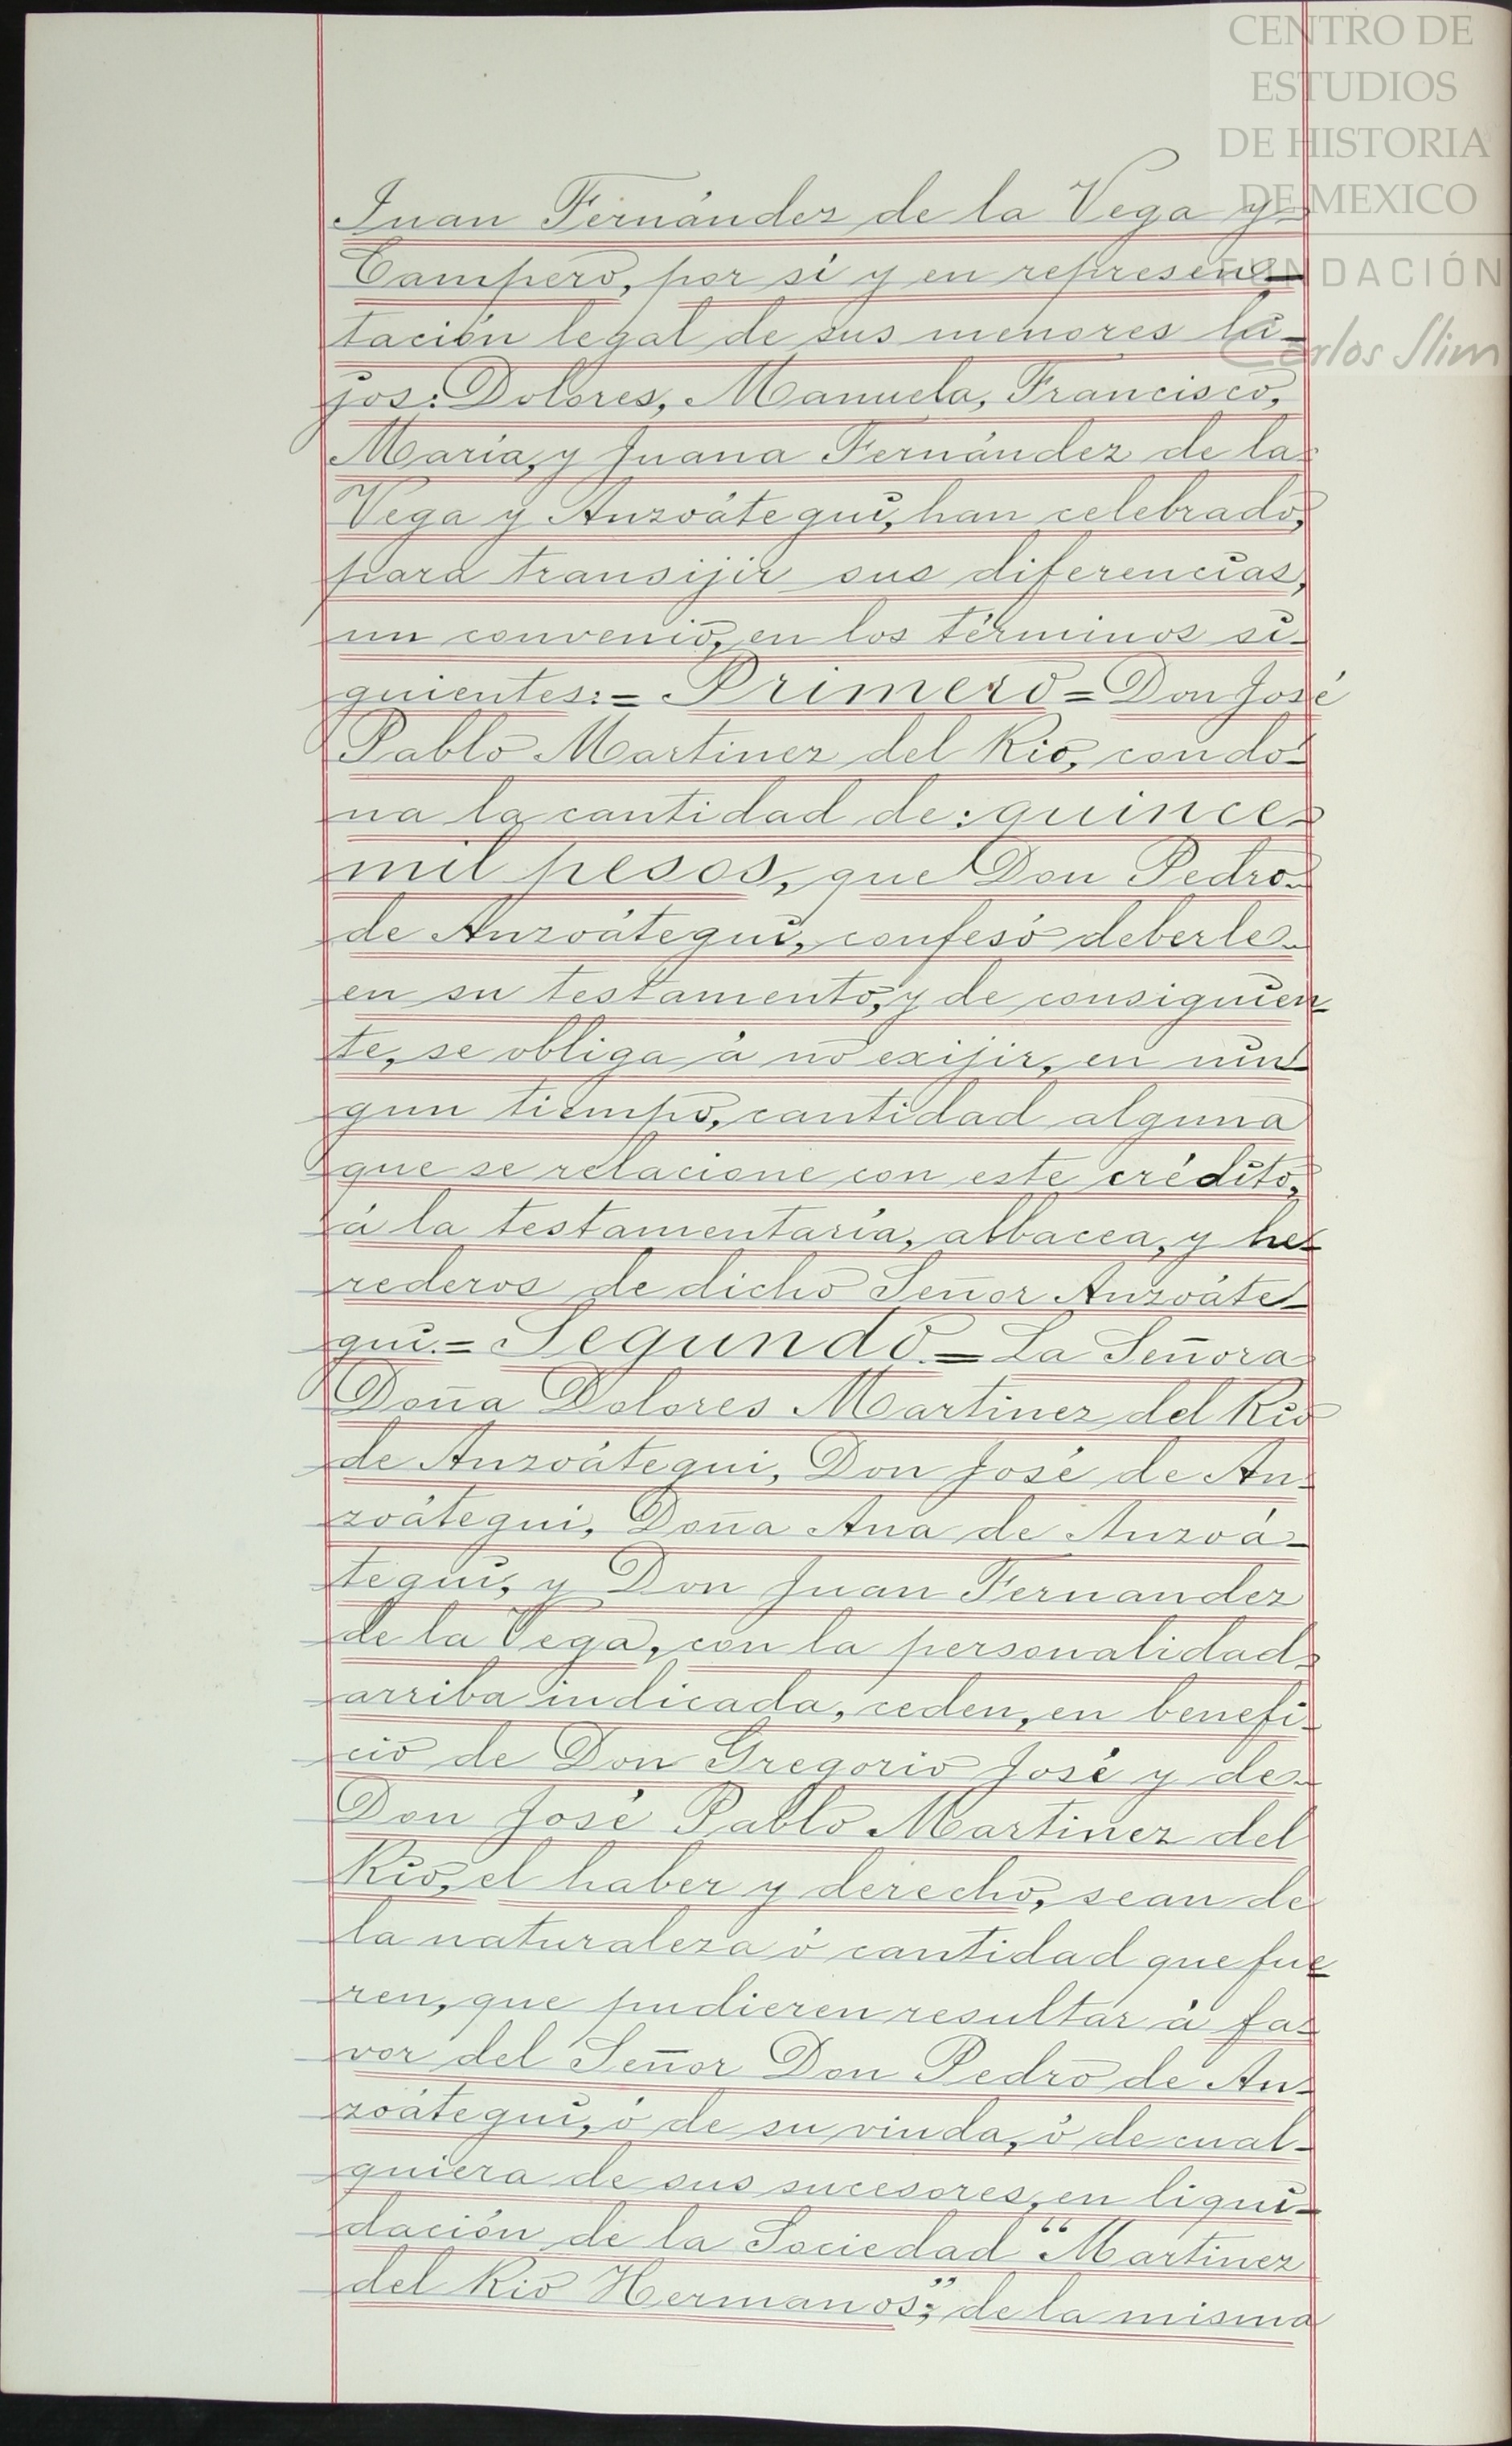 CENTRO DE
ESTUDIOS
DE HISTORIA
DE MEXICO
FUNDACIÓN
Carlos Slim
Juan Fernández de la Vega y
Campero, por sí y en represen-
tación legal de sus menores hi-
jos: Dolores, Manuela, Francisco,
María, y Juana Fernández de la
Vega y Anzoátegui, han celebrado,
para transijir sus diferencias,
un convenio, en los términos si-
guientes:= Primero = Don José
Pablo Martinez del Rio, condo-
na la cantidad de: quince
mil pesos, que Don Pedro
de Anzoátegui, confesó deberle
en su testamento, y de consiguien-
te, se obliga á no exijir, en nin-
gun tiempo, cantidad alguna
que se relacione con este crédito,
á la testamentaría, albacea, y he-
rederos de dicho Señor Anzoáte-
gui.= Segundo.= La Señora
Doña Dolores Martinez del Rio
de Anzoátegui, Don José de An-
zoátegui, Doña Ana de Anzoá-
tegui, y Don Juan Fernandez
de la Vega, con la personalidad
arriba indicada, ceden, en benefi-
cio de Don Gregorio José y de
Don José Pablo Martinez del
Rio, el haber y derecho, sean de
la naturaleza ó cantidad que fue-
ren, que pudieren resultar á fa-
vor del Señor Don Pedro de An-
zoátegui, ó de su viuda, ó de cual-
quiera de sus sucesores, en liqui-
dación de la Sociedad "Martinez
del Rio Hermanos"; de la misma